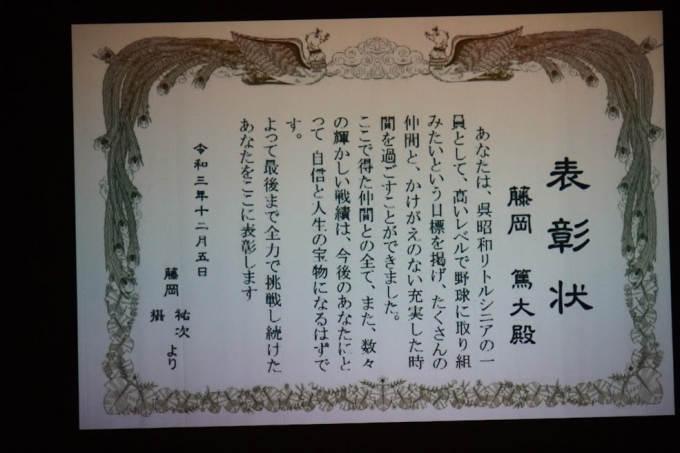 表彰状
藤岡 篤大殿
あなたは、呉昭和リトルシニアの一
員として、高いレベルで野球に取り組
みたいという目標を掲げ、たくさんの
仲間と、かけがえのない充実した時
間を過ごすことができました。
ここで得た仲間との全て、また、数々
の輝かしい戦績は、今後のあなたにと
って 自信と人生の宝物になるはずで
す。
よって最後まで全力で挑戦し続けた
あなたをここに表彰します
令和三年十二月五日
藤岡 祐次
摂 より